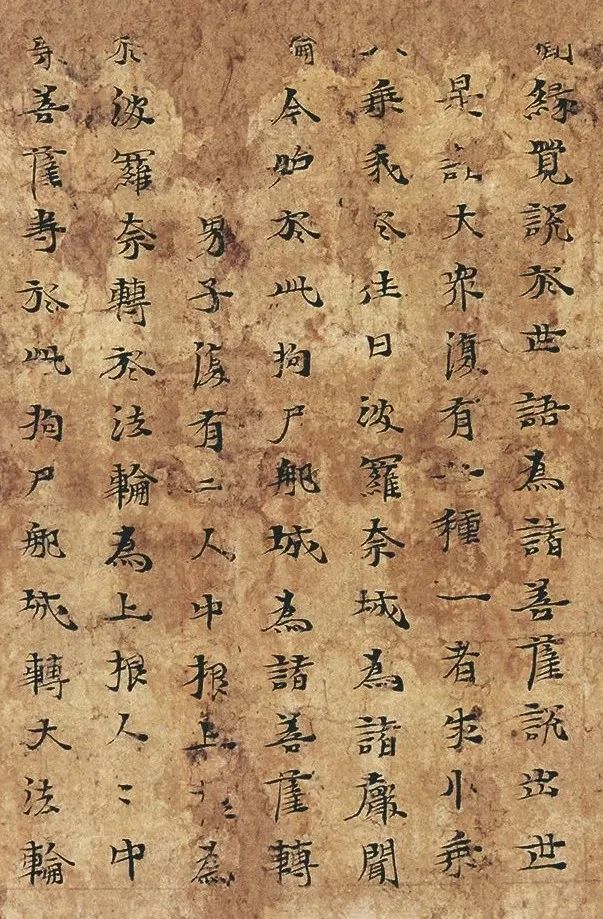 緣覺說於世語為諸菩薩說出世
是諸大眾復有二種一者求小乘
乘我於往日波羅奈城為諸聲聞
今始於此拘尸那城為諸菩薩轉
男子復有二人中根上為
於波羅奈轉於法輪為上根人〻中
菩薩等於此拘尸那城轉大法輪